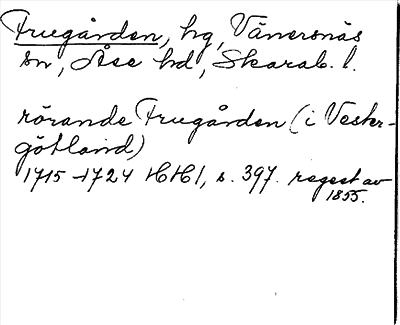 Fruegården, hg, Vänersnäs
sn, Åse hd, Skarab. l.
rörande Fruegården (i Vester-
götland)
1715-1724 HH1, s. 397. regest av
1855.